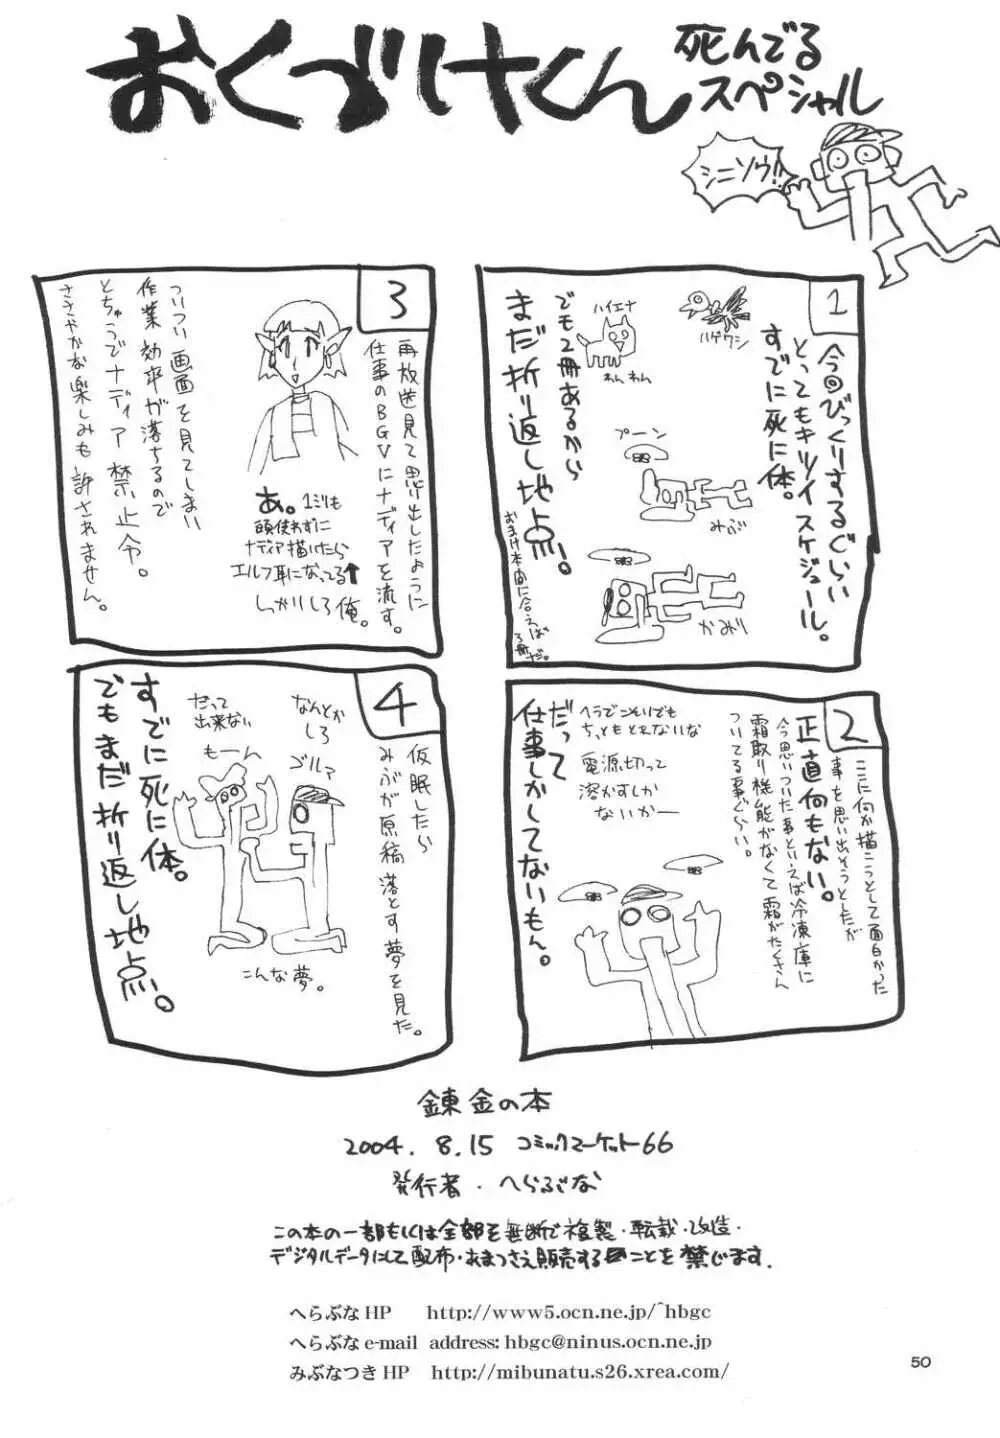 おくづけくん
死んでる
スペシャル
シニソウ!!
1
今回びっくりするぐらい
とってもキツイスケジュール。
すでに死に体。
ハゲワシ
ハイエナ
わん わん
でも2冊あるから
まだ折り返し地点!
おまけ本間に合えば
3冊だ。
プーン
みぶ
かみり
2
ここに何か描こうとして面白かった
事を思い出そうとしたが
正直何もない。
今思いついた事といえば冷凍庫に
霜取り機能がなくて霜がたくさん
ついてる事ぐらい。
ヘラでこそいでも
ちっともとれないな
電源切って
溶かすしか
ないかー
だって
仕事しかしてないもん。
3
再放送見て思い出したように
仕事のBGVにナディアを流す。
あ。1ミリも
頭使わずに
ナディア描いたら
エルフ耳になってる↑
しっかりしろ俺。
ついつい画面を見てしまい
作業効率が落ちるので
とちゅうでナディア禁止令。
ささやかな楽しみも許されません。
4
仮眠したら
みぶが原稿落とす夢を見た。
なんとか
しろ
ゴルァ
だって
出来ない
もーん
こんな夢。
すでに死に体。
でもまだ折り返し地点。
錬金の本
2004. 8.15 コミックマーケット66
発行者・へらぶな
この本の一部もしくは全部を無断で複製・転載・改造・
デジタルデータにして配布・あまつさえ販売することを禁じます.
へらぶなHP http://www5.ocn.ne.jp/~hbgc
へらぶな e-mail address: hbgc@ninus.ocn.ne.jp
みぶなつきHP http://mibunatu.s26.xrea.com/
50